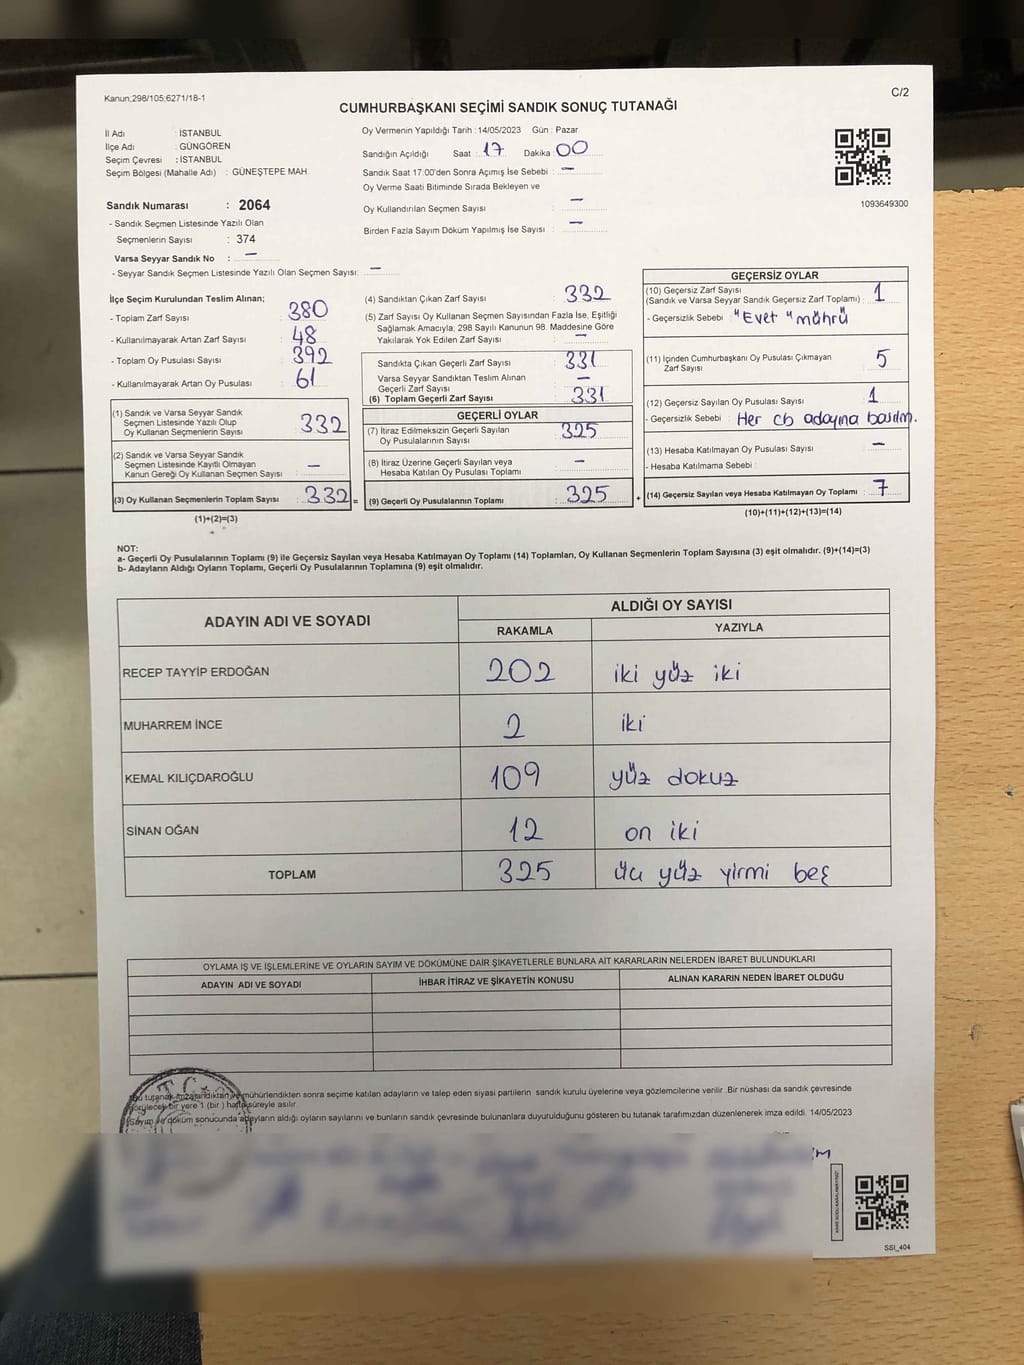 Kanun;298/105;6271/18-1
C/2
CUMHURBAŞKANI SEÇİMİ SANDIK SONUÇ TUTANAĞI
İl Adı : İSTANBUL
İlçe Adı : GÜNGÖREN
Seçim Çevresi : İSTANBUL
Seçim Bölgesi (Mahalle Adı) : GÜNEŞTEPE MAH.
Sandık Numarası : 2064
- Sandık Seçmen Listesinde Yazılı Olan
Seçmenlerin Sayısı : 374
Varsa Seyyar Sandık No : –
- Seyyar Sandık Seçmen Listesinde Yazılı Olan Seçmen Sayısı: –
Oy Vermenin Yapıldığı Tarih : 14/05/2023 Gün : Pazar
Sandığın Açıldığı Saat : 17 Dakika : 00
Sandık Saat 17:00'den Sonra Açımış İse Sebebi : –
Oy Verme Saati Bitiminde Sırada Bekleyen ve
Oy Kullandırılan Seçmen Sayısı : –
Birden Fazla Sayım Döküm Yapılmış İse Sayısı : –
1093649300
İlçe Seçim Kurulundan Teslim Alınan;
- Toplam Zarf Sayısı : 380
- Kullanılmayarak Artan Zarf Sayısı : 48
- Toplam Oy Pusulası Sayısı : 392
- Kullanılmayarak Artan Oy Pusulası : 61
(1) Sandık ve Varsa Seyyar Sandık
Seçmen Listesinde Yazılı Olup
Oy Kullanan Seçmenlerin Sayısı : 332
(2) Sandık ve Varsa Seyyar Sandık
Seçmen Listesinde Kayıtlı Olmayan
Kanun Gereği Oy Kullanan Seçmen Sayısı : –
(3) Oy Kullanan Seçmenlerin Toplam Sayısı : 332 =
(1)+(2)=(3)
(4) Sandıktan Çıkan Zarf Sayısı : 332
(5) Zarf Sayısı Oy Kullanan Seçmen Sayısından Fazla İse, Eşitliği
Sağlamak Amacıyla; 298 Sayılı Kanunun 98. Maddesine Göre
Yakılarak Yok Edilen Zarf Sayısı : –
Sandıkta Çıkan Geçerli Zarf Sayısı : 331
Varsa Seyyar Sandıktan Teslim Alınan
Geçerli Zarf Sayısı : –
(6) Toplam Geçerli Zarf Sayısı : 331
GEÇERLİ OYLAR
(7) İtiraz Edilmeksizin Geçerli Sayılan
Oy Pusulalarının Sayısı : 325
(8) İtiraz Üzerine Geçerli Sayılan veya
Hesaba Katılan Oy Pusulası Toplamı : –
(9) Geçerli Oy Pusulalarının Toplamı : 325 +
GEÇERSİZ OYLAR
(10) Geçersiz Zarf Sayısı
(Sandık ve Varsa Seyyar Sandık Geçersiz Zarf Toplamı) : 1
- Geçersizlik Sebebi : "Evet" mührü
(11) İçinden Cumhurbaşkanı Oy Pusulası Çıkmayan
Zarf Sayısı : 5
(12) Geçersiz Sayılan Oy Pusulası Sayısı : 1
- Geçersizlik Sebebi : Her cb adayına basılm.
(13) Hesaba Katılmayan Oy Pusulası Sayısı : –
- Hesaba Katılmama Sebebi :
(14) Geçersiz Sayılan veya Hesaba Katılmayan Oy Toplamı : 7
(10)+(11)+(12)+(13)=(14)
NOT:
a- Geçerli Oy Pusulalarının Toplamı (9) ile Geçersiz Sayılan veya Hesaba Katılmayan Oy Toplamı (14) Toplamları, Oy Kullanan Seçmenlerin Toplam Sayısına (3) eşit olmalıdır. (9)+(14)=(3)
b- Adayların Aldığı Oyların Toplamı, Geçerli Oy Pusulalarının Toplamına (9) eşit olmalıdır.
ADAYIN ADI VE SOYADI
ALDIĞI OY SAYISI
RAKAMLA YAZIYLA
RECEP TAYYİP ERDOĞAN 202 iki yüz iki
MUHARREM İNCE 2 iki
KEMAL KILIÇDAROĞLU 109 yüz dokuz
SİNAN OĞAN 12 on iki
TOPLAM 325 üç yüz yirmi beş
OYLAMA İŞ VE İŞLEMLERİNE VE OYLARIN SAYIM VE DÖKÜMÜNE DAİR ŞİKAYETLERLE BUNLARA AİT KARARLARIN NELERDEN İBARET BULUNDUKLARI
ADAYIN ADI VE SOYADI İHBAR İTİRAZ VE ŞİKAYETİN KONUSU ALINAN KARARIN NEDEN İBARET OLDUĞU
T.C.
İşbu tutanak imzalandıktan ve mühürlendikten sonra seçime katılan adayların ve talep eden siyasi partilerin sandık kurulu üyelerine veya gözlemcilerine verilir .Bir nüshası da sandık çevresinde
görülecek bir yere 1 (bir ) hafta süreyle asılır.
Sayım ve döküm sonucunda adayların aldığı oyların sayılarını ve bunların sandık çevresinde bulunanlara duyurulduğunu gösteren bu tutanak tarafımızdan düzenlenerek imza edildi. 14/05/2023
SSI_404